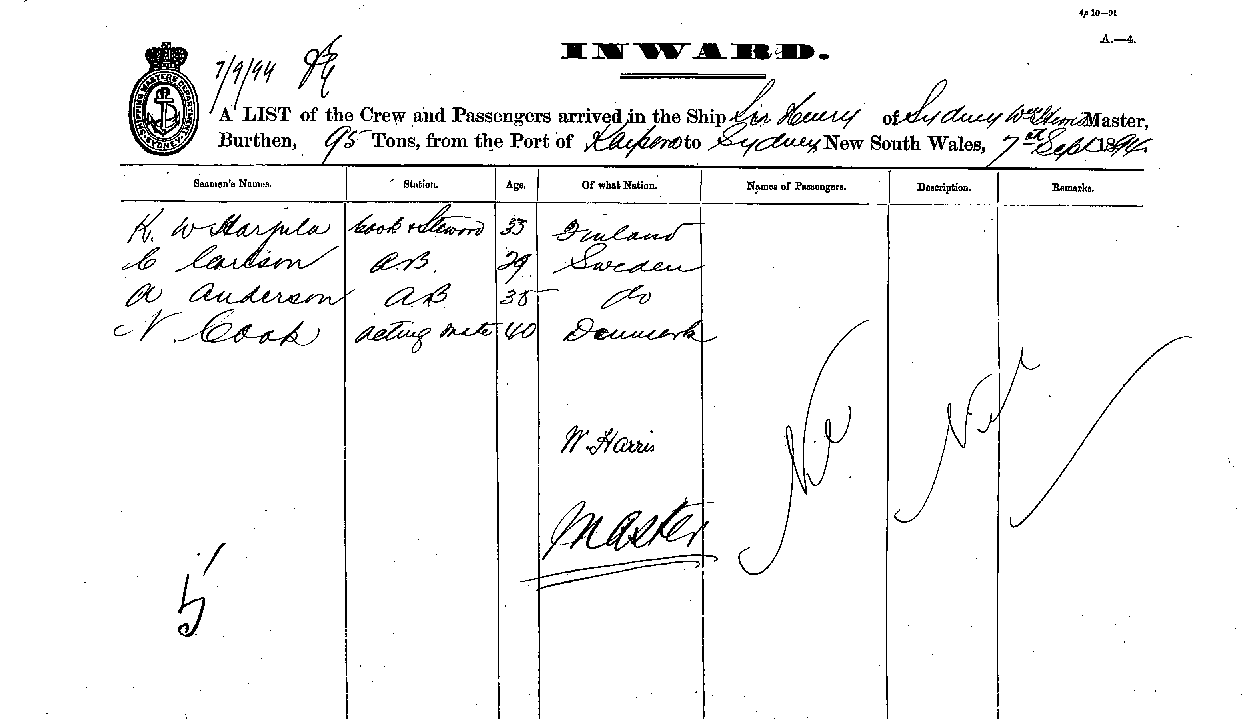 4p 10—91
A.—4.
7/9/94
INWARD.
SHIPPING MASTER'S DEPARTMENT SYDNEY
A LIST of the Crew and Passengers arrived in the Ship Sir Henry of Sydney Wm Harris Master,
Burthen, 95 Tons, from the Port of to Sydney New South Wales, 7th Sept 1894
Seamen's Names. Station. Age. Of what Nation. Names of Passengers. Description. Remarks.
K. W Harjula Cook & Steward 33 Finland
C Carlson A.B. 29 Sweden
A Anderson AB 35 do
N. Cook acting mate 40 Denmark
Nil Nil
W. Harris
Master
5